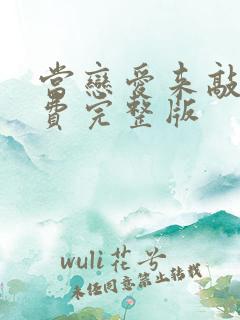 當戀愛來敲
費完整版
wuli花兮
未经同意禁止转载